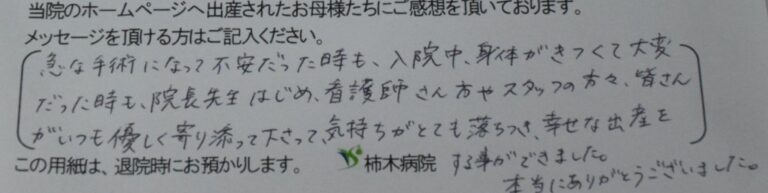 当院のホームページへ出産されたお母様たちにご感想を頂いております。
メッセージを頂ける方はご記入ください。
急な手術になって不安だった時も、入院中、身体がきつくて大変
だった時も、院長先生はじめ、看護師さん方やスタッフの方々、皆さん
がいつも優しく寄り添って下さって、気持ちがとても落ちつき、幸せな出産を
この用紙は、退院時にお預かりします。 柿木病院 する事ができました。
本当にありがとうございました。